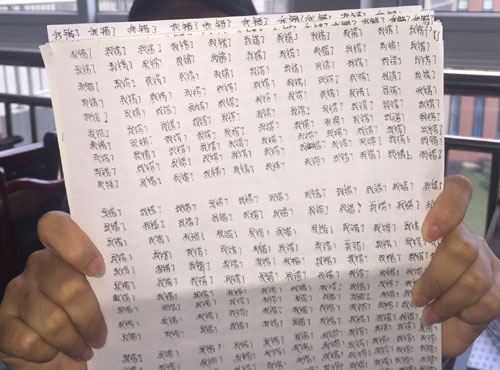 我错了 我错了 我错了 我错了 我错了 我错了 我错了 我错了
我错了 我错了 我错了 我错了 我错了 我错了 我错了 我错了 我错了 我错了 我错了 我错了
我错了 我错了 我错了 我错了 我错了 我错了 我错了 我错了 我错了 我错了 我错了 我错了
我错了 我错了 我错了 我错了 我错了 我错了 我错了 我错了 我错了 我错了 我错了 我错了
我错了 我错了 我错了 我错了 我错了 我错了 我错了 我错了 我错了 我错了 我错了 我错了
我错了 我错了 我错了 我错了 我错了 我错了 我错了 我错了 我错了 我错了 我错了 我错了
我错了 我错了 我错了 我错了 我错了 我错了 我错了 我错了 我错了 我错了 我错了 我错了
我错了 我错了 我错了 我错了 我错了 我错了 我错了 我错了 我错了 我错了 我错了 我错了
我错了 我错了 我错了 我错了 我错了 我错了 我错了 我错了 我错了 我错了 我错了 我错了
我错了 我错了 我错了 我错了 我错了 我错了 我错了 我错了 我错了 我错了 我错了 我错了
我错了 我错了 我错了 我错了 我错了 我错了 我错了
我错了 我错了 我错了 我错了 我错了 我错了 我错了 我错了 我错了 我错了 我错了
我错了 我错了 我错了 我错了 我错了 我错了 我错了 我错了 我错了 我错了 我错了
我错了 我错了 我错了 我错了 我错了 我错了 我错了 我错了 我错了 我错了
我错了 我错了 我错了 我错了 我错了 我错了 我错了 我错了 我错了 我错了
我错了 我错了 我错了 我错了 我错了 我错了 我错了 我错了 我错了 我错了
我错了 我错了 我错了 我错了 我错了 我错了 我错了 我错了 我错了 我错了
我错了 我错了 我错了 我错了 我错了 我错了 我错了 我错了 我错了 我错了
我错了 我错了 我错了 我错了 我错了 我错了 我错了 我错了 我错了 我错了
我错了 我错了 我错了 我错了 我错了 我错了 我错了 我错了 我错了 我错了
我错了 我错了 我错了 我错了 我错了 我错了 我错了 我错了 我错了 我错了
我错了 我错了 我错了 我错了 我错了 我错了 我错了 我错了 我错了 我错了